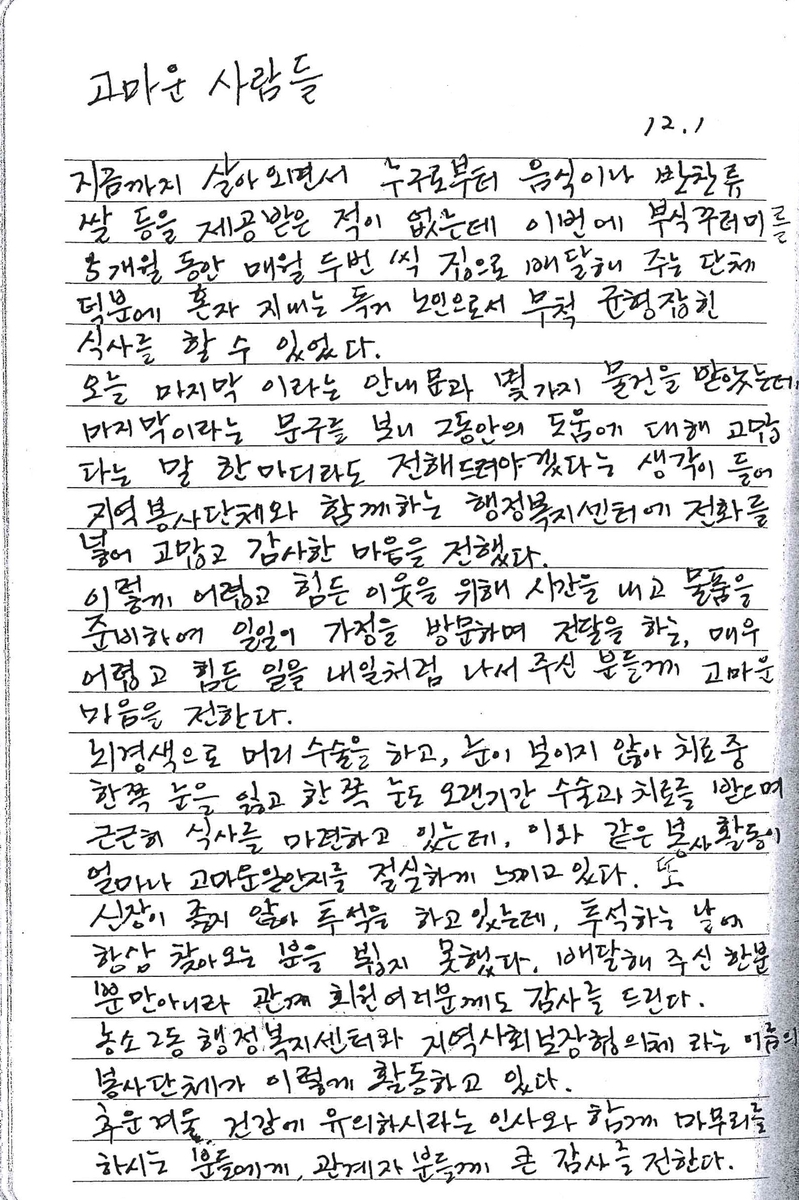 고마운 사람들
12.1
지금까지 살아오면서 누구로부터 음식이나 반찬류
쌀 등을 제공받은 적이 없는데 이번에 부식꾸러미를
5개월 동안 매월 두번 씩 집으로 배달해 주는 단체
덕분에 혼자 지내는 독거 노인으로서 무척 균형잡힌
식사를 할 수 있었다.
오늘 마지막 이라는 안내문과 몇가지 물건을 받았는데,
마지막이라는 문구를 보니 그동안의 도움에 대해 고맙
다는 말 한마디라도 전해드려야겠다는 생각이 들어
지역봉사단체와 함께하는 행정복지센터에 전화를
넣어 고맙고 감사한 마음을 전했다.
이렇게 어렵고 힘든 이웃을 위해 시간을 내고 물품을
준비하여 일일이 가정을 방문하며 전달을 하는, 매우
어렵고 힘든 일을 내일처럼 나서 주신 분들께 고마운
마음을 전한다.
뇌경색으로 머리 수술을 하고, 눈이 보이지 않아 치료중
한쪽 눈을 잃고 한쪽 눈도 오랜기간 수술과 치료를 받으며
근근히 식사를 마련하고 있는데, 이와 같은 봉사활동이
얼마나 고마운일인지를 절실하게 느끼고 있다. 또
신장이 좋지 않아 투석을 하고있는데, 투석하는 날에
항상 찾아오는 분을 뵙지 못했다. 배달해 주신 한분
뿐만아니라 관계 회원여러분께도 감사를 드린다.
농소2동 행정복지센터와 지역사회보장협의체 라는 이름의
봉사단체가 이렇게 활동하고 있다.
추운겨울 건강에 유의하시라는 인사와 함께 마무리를
하시는 분들에게, 관계자 분들께 큰 감사를 전한다.